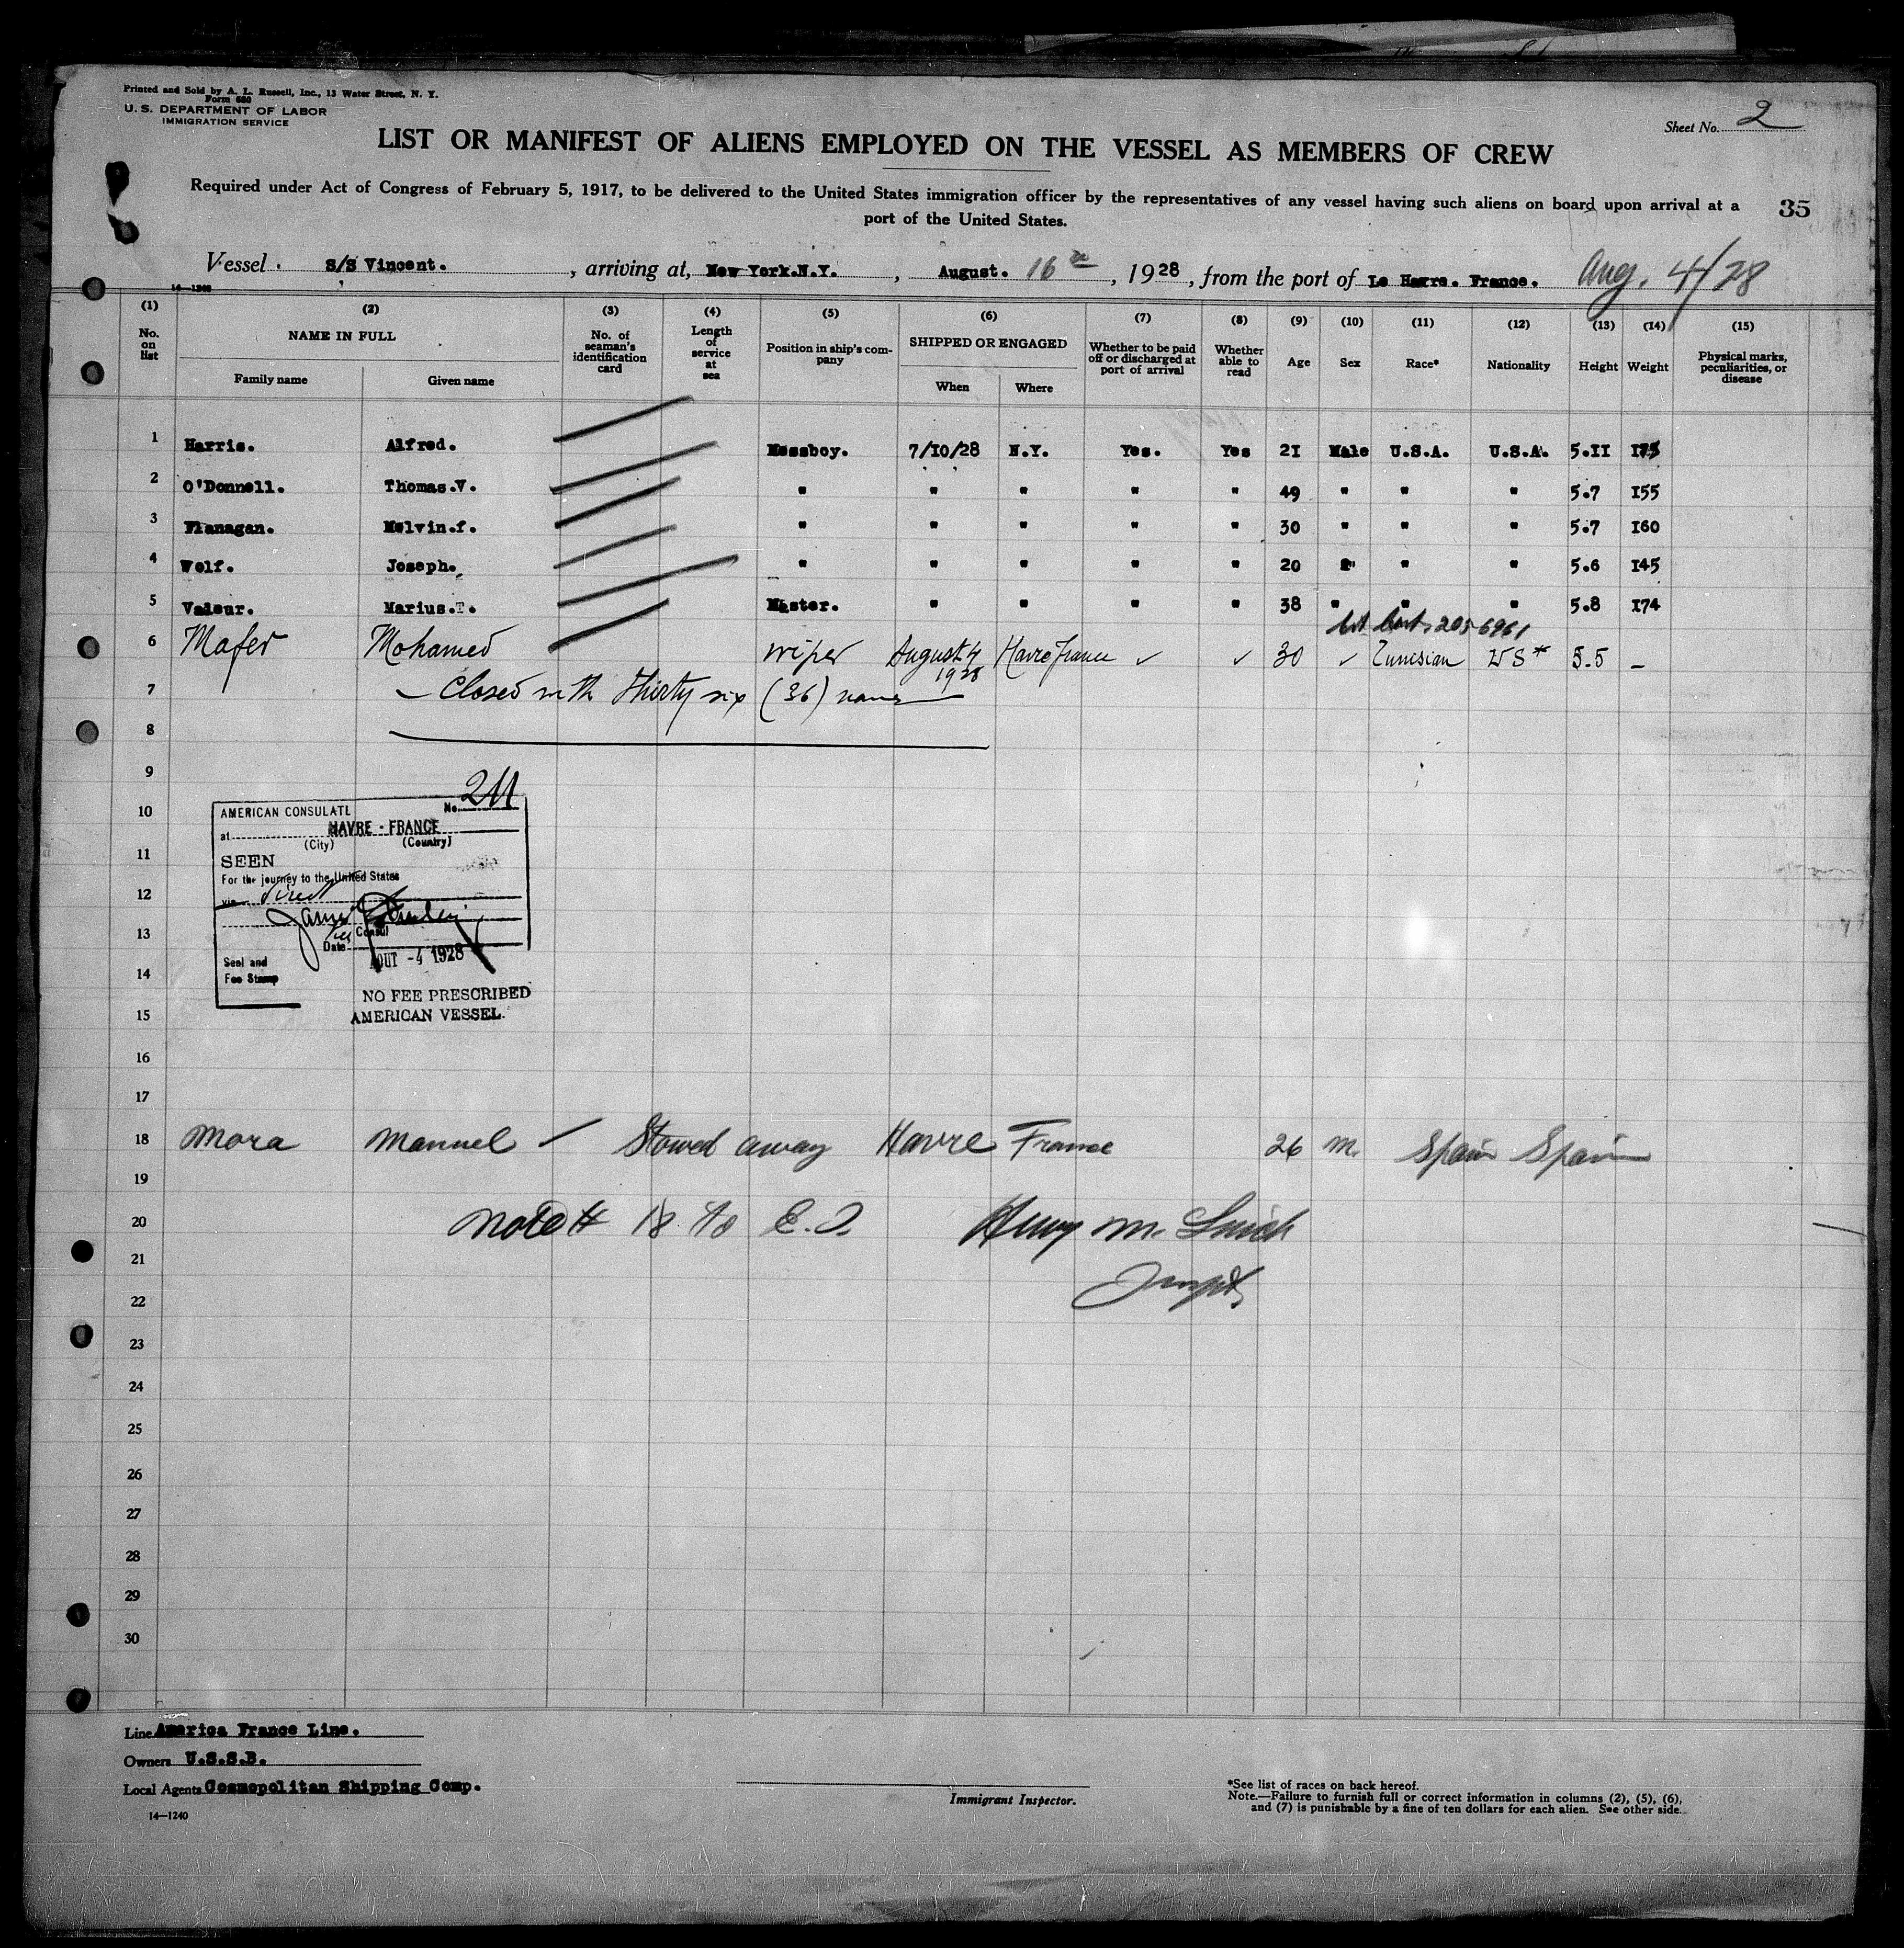 Printed and Sold by A. L. Russell, Inc., 13 Water Street, N. Y.
Form 680
U. S. DEPARTMENT OF LABOR
IMMIGRATION SERVICE
Sheet No. 2
LIST OR MANIFEST OF ALIENS EMPLOYED ON THE VESSEL AS MEMBERS OF CREW
Required under Act of Congress of February 5, 1917, to be delivered to the United States immigration officer by the representatives of any vessel having such aliens on board upon arrival at a
port of the United States.
35
Vessel S/S Vincent. , arriving at, New York.N.Y. , August. 16th , 1928 , from the port of Le Havre. France. Aug. 4/28
14—1240
(1) (2) (3) (4) (5) (6) (7) (8) (9) (10) (11) (12) (13) (14) (15)
No. on list NAME IN FULL No. of seaman's identification card Length of service at sea Position in ship's company SHIPPED OR ENGAGED Whether to be paid off or discharged at port of arrival Whether able to read Age Sex Race* Nationality Height Weight Physical marks, peculiarities, or disease
Family name Given name When Where
1 Harris. Alfred. Messboy. 7/10/28 N.Y. Yes. Yes 21 Male U.S.A. U.S.A. 5.11 175
2 O'Donnell. Thomas.V. " " " " " 49 " " " 5.7 155
3 Flanagan. Melvin.f. " " " " " 30 " " " 5.7 160
4 Wolf. Joseph. " " " " " 20 " " " 5.6 145
5 Valeur. Marius.T. Master. " " " " 38 " " " 5.8 174
Cert. 2056961
6 Mafer Mohamed wiper August 4 1928 Havre France ✓ ✓ 30 ✓ Tunesian US* 5.5 –
7 – Closed with thirty six (36) names
8
9
10
AMERICAN CONSULATE No. 211
at HAVRE - FRANCE
(City) (Country)
11
SEEN
For the journey to the United States
12
via direct
13
Consul
Date AOUT -4 1928
Seal and
Fee Stamp
14
NO FEE PRESCRIBED
AMERICAN VESSEL.
15
16
17
18 Mora Manuel ✓ Stowed away Havre France 26 M. Spain Spain
19
20 Note # 18 to E. I. Henry M. Smith
21 Inspt.
22
23
24
25
26
27
28
29
30
Line America France Line.
Owners U.S.S.B.
Local Agents Cosmopolitan Shipping Comp.
14—1240
Immigrant Inspector.
*See list of races on back hereof.
Note.—Failure to furnish full or correct information in columns (2), (5), (6),
and (7) is punishable by a fine of ten dollars for each alien. See other side.